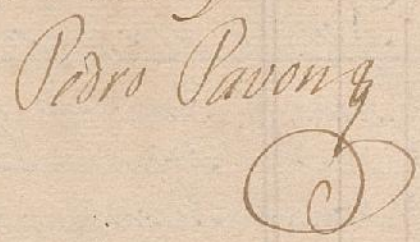 Pedro Pavon